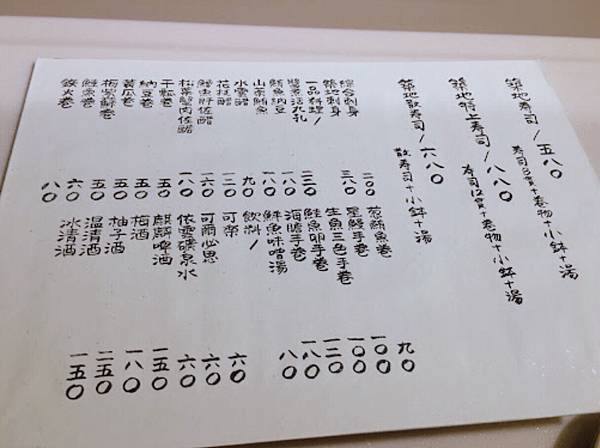 築地寿司/五八〇
寿司8貫+卷物+小鉢+湯
築地特上寿司/八八〇
寿司12貫+卷物+小鉢+湯
築地散寿司/六八〇
散寿司+小鉢+湯
綜合刺身
築地刺身/
一品料理/
醬煮活九孔
鮪魚納豆
山葵鮪魚
水雲醋
花枝醋
松葉蟹肉佐醋
干瓢卷
納豆卷
黃瓜卷
梅紫蘇卷
鮭魚卷
鐵火卷
二〇〇
三八〇
二三〇
一八〇
一八〇
九〇
一二〇
一六〇
一八〇
五〇
五〇
五〇
五〇
六〇
八〇
蔥鮪魚卷
星鰻手卷
生魚三色手卷
鮭魚卵手卷
海膽手卷
鮮魚味噌湯
飲料/
可樂
可爾必思
依雲礦泉水
麒麟啤酒
梅酒
柚子酒
溫清酒
冰清酒
九〇
一〇〇
一〇〇
一二〇
一八〇
八〇
六〇
六〇
六〇
一五〇
一八〇
二五〇
一五〇